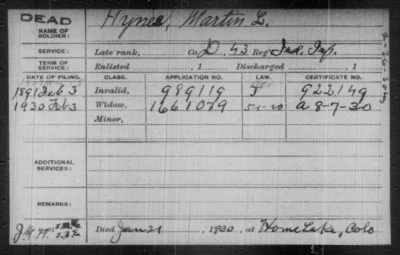 DEAD
NAME OF SOLDIER:
Hynes, Martin L.
SERVICE:
Late rank, Co. D, 43 Reg't Ind. Inf.
TERM OF SERVICE:
Enlisted , 1 Discharged , 1
DATE OF FILING. CLASS. APPLICATION NO. LAW. CERTIFICATE NO.
1891 Feb 3 Invalid, 989119 922149
1930 Feb 3 Widow, 1661079 5-1-20 A 8-7-30
Minor,
ADDITIONAL SERVICES:
REMARKS:
Died Jan 21, 1930, at Home Lake, Colo